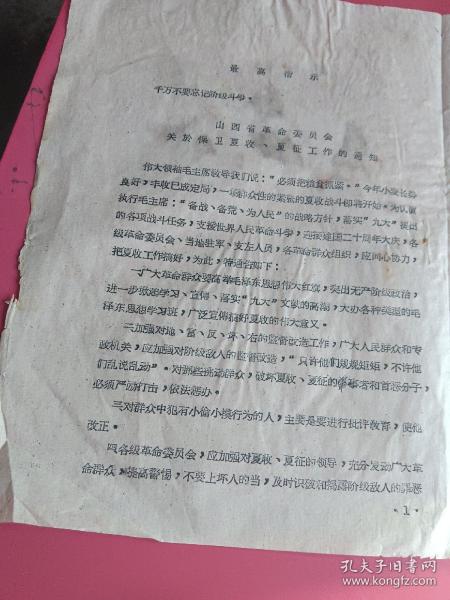 最高指示
千万不要忘记阶级斗争。
山西省革命委员会
关於保卫夏收、夏征工作的通知
伟大领袖毛主席教导我们说：“必须把粮食抓紧。”今年小麦长势
良好，丰收已成定局，一场群众性的紧张的夏收战斗即将开始。为认真
执行毛主席：“备战、备荒、为人民”的战略方针，落实“九大”提出
的各项战斗任务，支援世界人民革命斗争，迎接建国二十周年大庆，各
级革命委员会、当地驻军、支左人员，各革命群众组织，应同心协力，
把夏收工作搞好，为此，特通告如下：
一、广大革命群众要高举毛泽东思想伟大红旗，突出无产阶级政治，
进一步掀起学习、宣传、落实“九大”文献的高潮，大办各种类型的毛
泽东思想学习班，广泛宣传搞好夏收的伟大意义。
二、加强对地、富、反、坏、右的监督改造工作，广大人民群众和专
政机关，应加强对阶级敌人的监督改造，“只许他们规规矩矩，不许他
们乱说乱动”。对挑动群众，破坏夏收、夏征的肇事者和首恶分子，
必须严厉打击，依法惩办。
三、对群众中犯有小偷小摸行为的人，主要是要进行批评教育，使他
改正。
四、各级革命委员会，应加强对夏收、夏征的领导，充分发动广大革
命群众，提高警惕，不要上坏人的当，及时识破和揭露阶级敌人的罪恶
·1·
孔夫子旧书网
www.kongfz.com